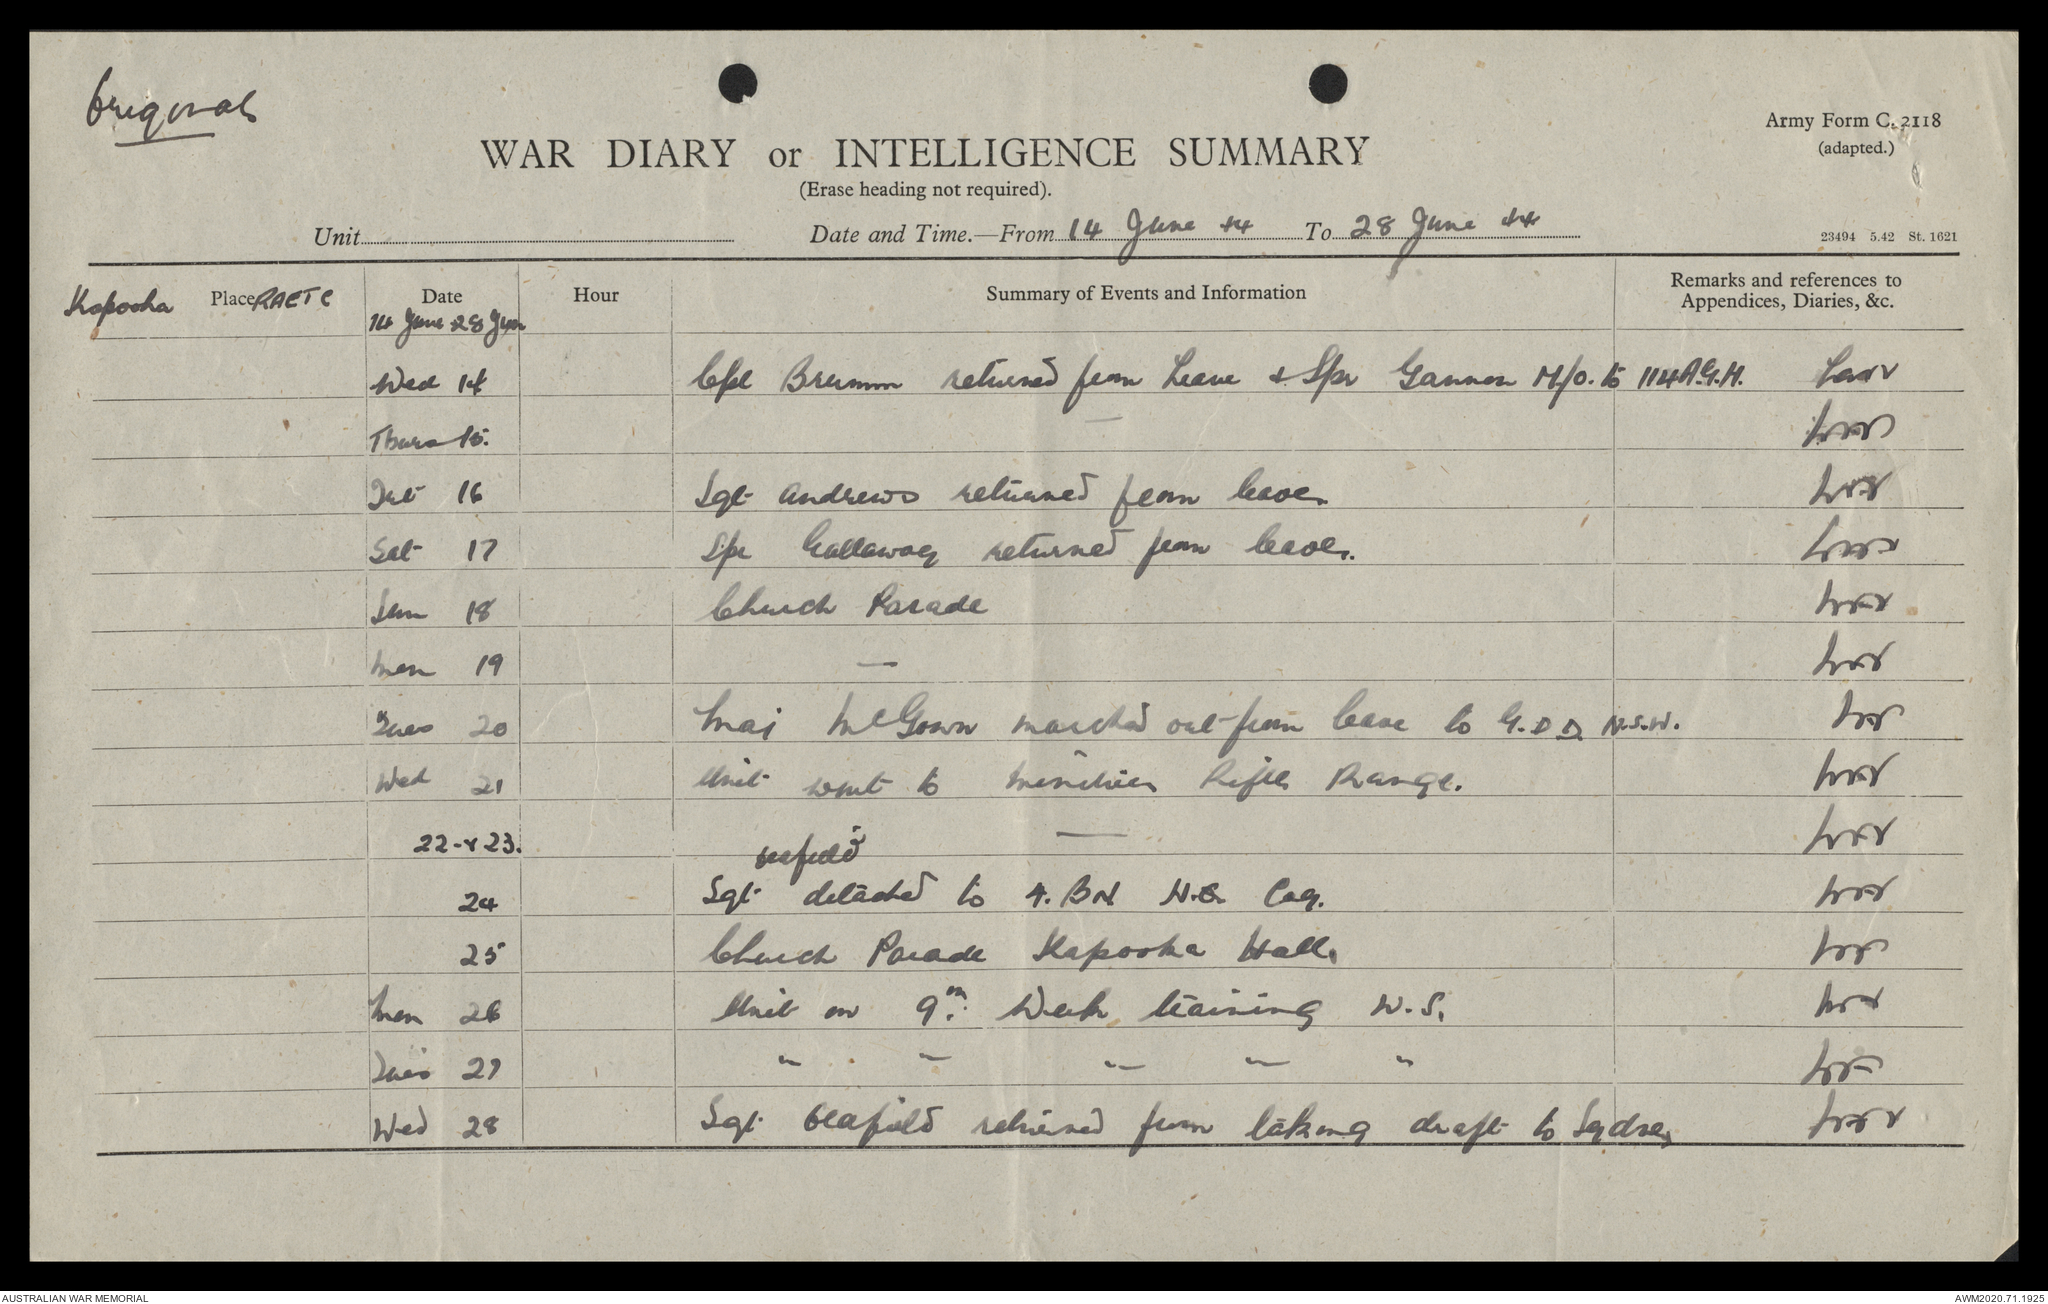 Original
Army Form C. 2118
(adapted.)
WAR DIARY or INTELLIGENCE SUMMARY
(Erase heading not required).
Unit
Date and Time.—From 14 June 44 To 28 June 44
23494 5.42 St. 1621
Kapooka Place RAETC Date Hour Summary of Events and Information Remarks and references to
Appendices, Diaries, &c.
14 June - 28 June
Wed 14 Cpl returned from Leave & Spr Gannon M/O. to 114 A.G.H.
Thurs 15. —
Fri 16 Sgt Andrews returned from leave.
Sat 17 Spr Gallaway returned from leave.
Sun 18 Church Parade
Mon 19 —
Tues 20 Maj McGown marched out from leave to G.D.D. N.S.W.
Wed 21 Unit went to Rifle Range.
22 & 23. —
24 Sgt detached to 4. BN H.Q. Coy.
25 Church Parade Kapooka Hall.
Mon 26 Unit on 9th. Week training W.S.
Tues 27 " " " " "
Wed 28 Sgt returned from taking draft to Sydney
AUSTRALIAN WAR MEMORIAL
AWM2020.71.1925